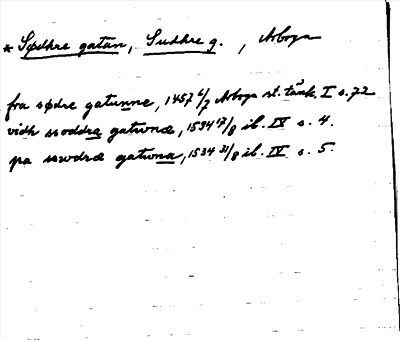 * Sødhre gatan, Sudhre g., Arboga
fra sødre gatunne, 1457 6/7 Arboga st. tänk. I s. 72
vidh ssoddra gatwnæ, 1534 17/8 ib. IV s. 4.
pa sswdræ gatwna, 1534 31/8 ib. IV s. 5.